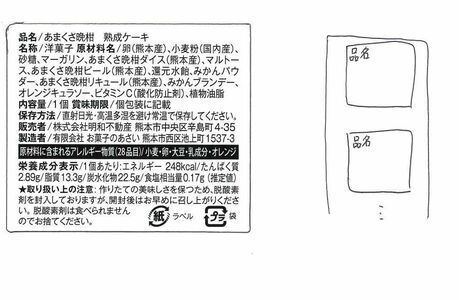 品名/あまくさ晩柑 熟成ケーキ
名称/洋菓子 原材料名/卵(熊本産)、小麦粉(国内産)、
砂糖、マーガリン、あまくさ晩柑ダイス(熊本産)、マルトー
ス、あまくさ晩柑ピール(熊本産)、還元水飴、みかんパウ
ダー、あまくさ晩柑リキュール(熊本産)、みかんブランデー、
オレンジキュラソー、ビタミンC(酸化防止剤)、植物油脂
内容量/1個 賞味期限/個包装に記載
保存方法/直射日光・高温多湿を避けて保存してください。
販売者/株式会社明和不動産 熊本市中央区辛島町4-35
製造者/有限会社 お菓子のあさい 熊本市西区池上町1537-3
原材料に含まれるアレルギー物質(28品目)/小麦・卵・大豆・乳成分・オレンジ
栄養成分表示/1個あたり:エネルギー 248kcal/たんぱく質
2.89g/脂質13.3g/炭水化物22.5g/食塩相当量0.17g(推定値)
★取り扱い上の注意:作りたての美味しさを保つため、脱酸素
剤を封入しておりますが、開封後はお早めに召し上がりください。
脱酸素剤は食べられません
のでお捨てください。
紙 ラベル プラ 袋
品名
品名